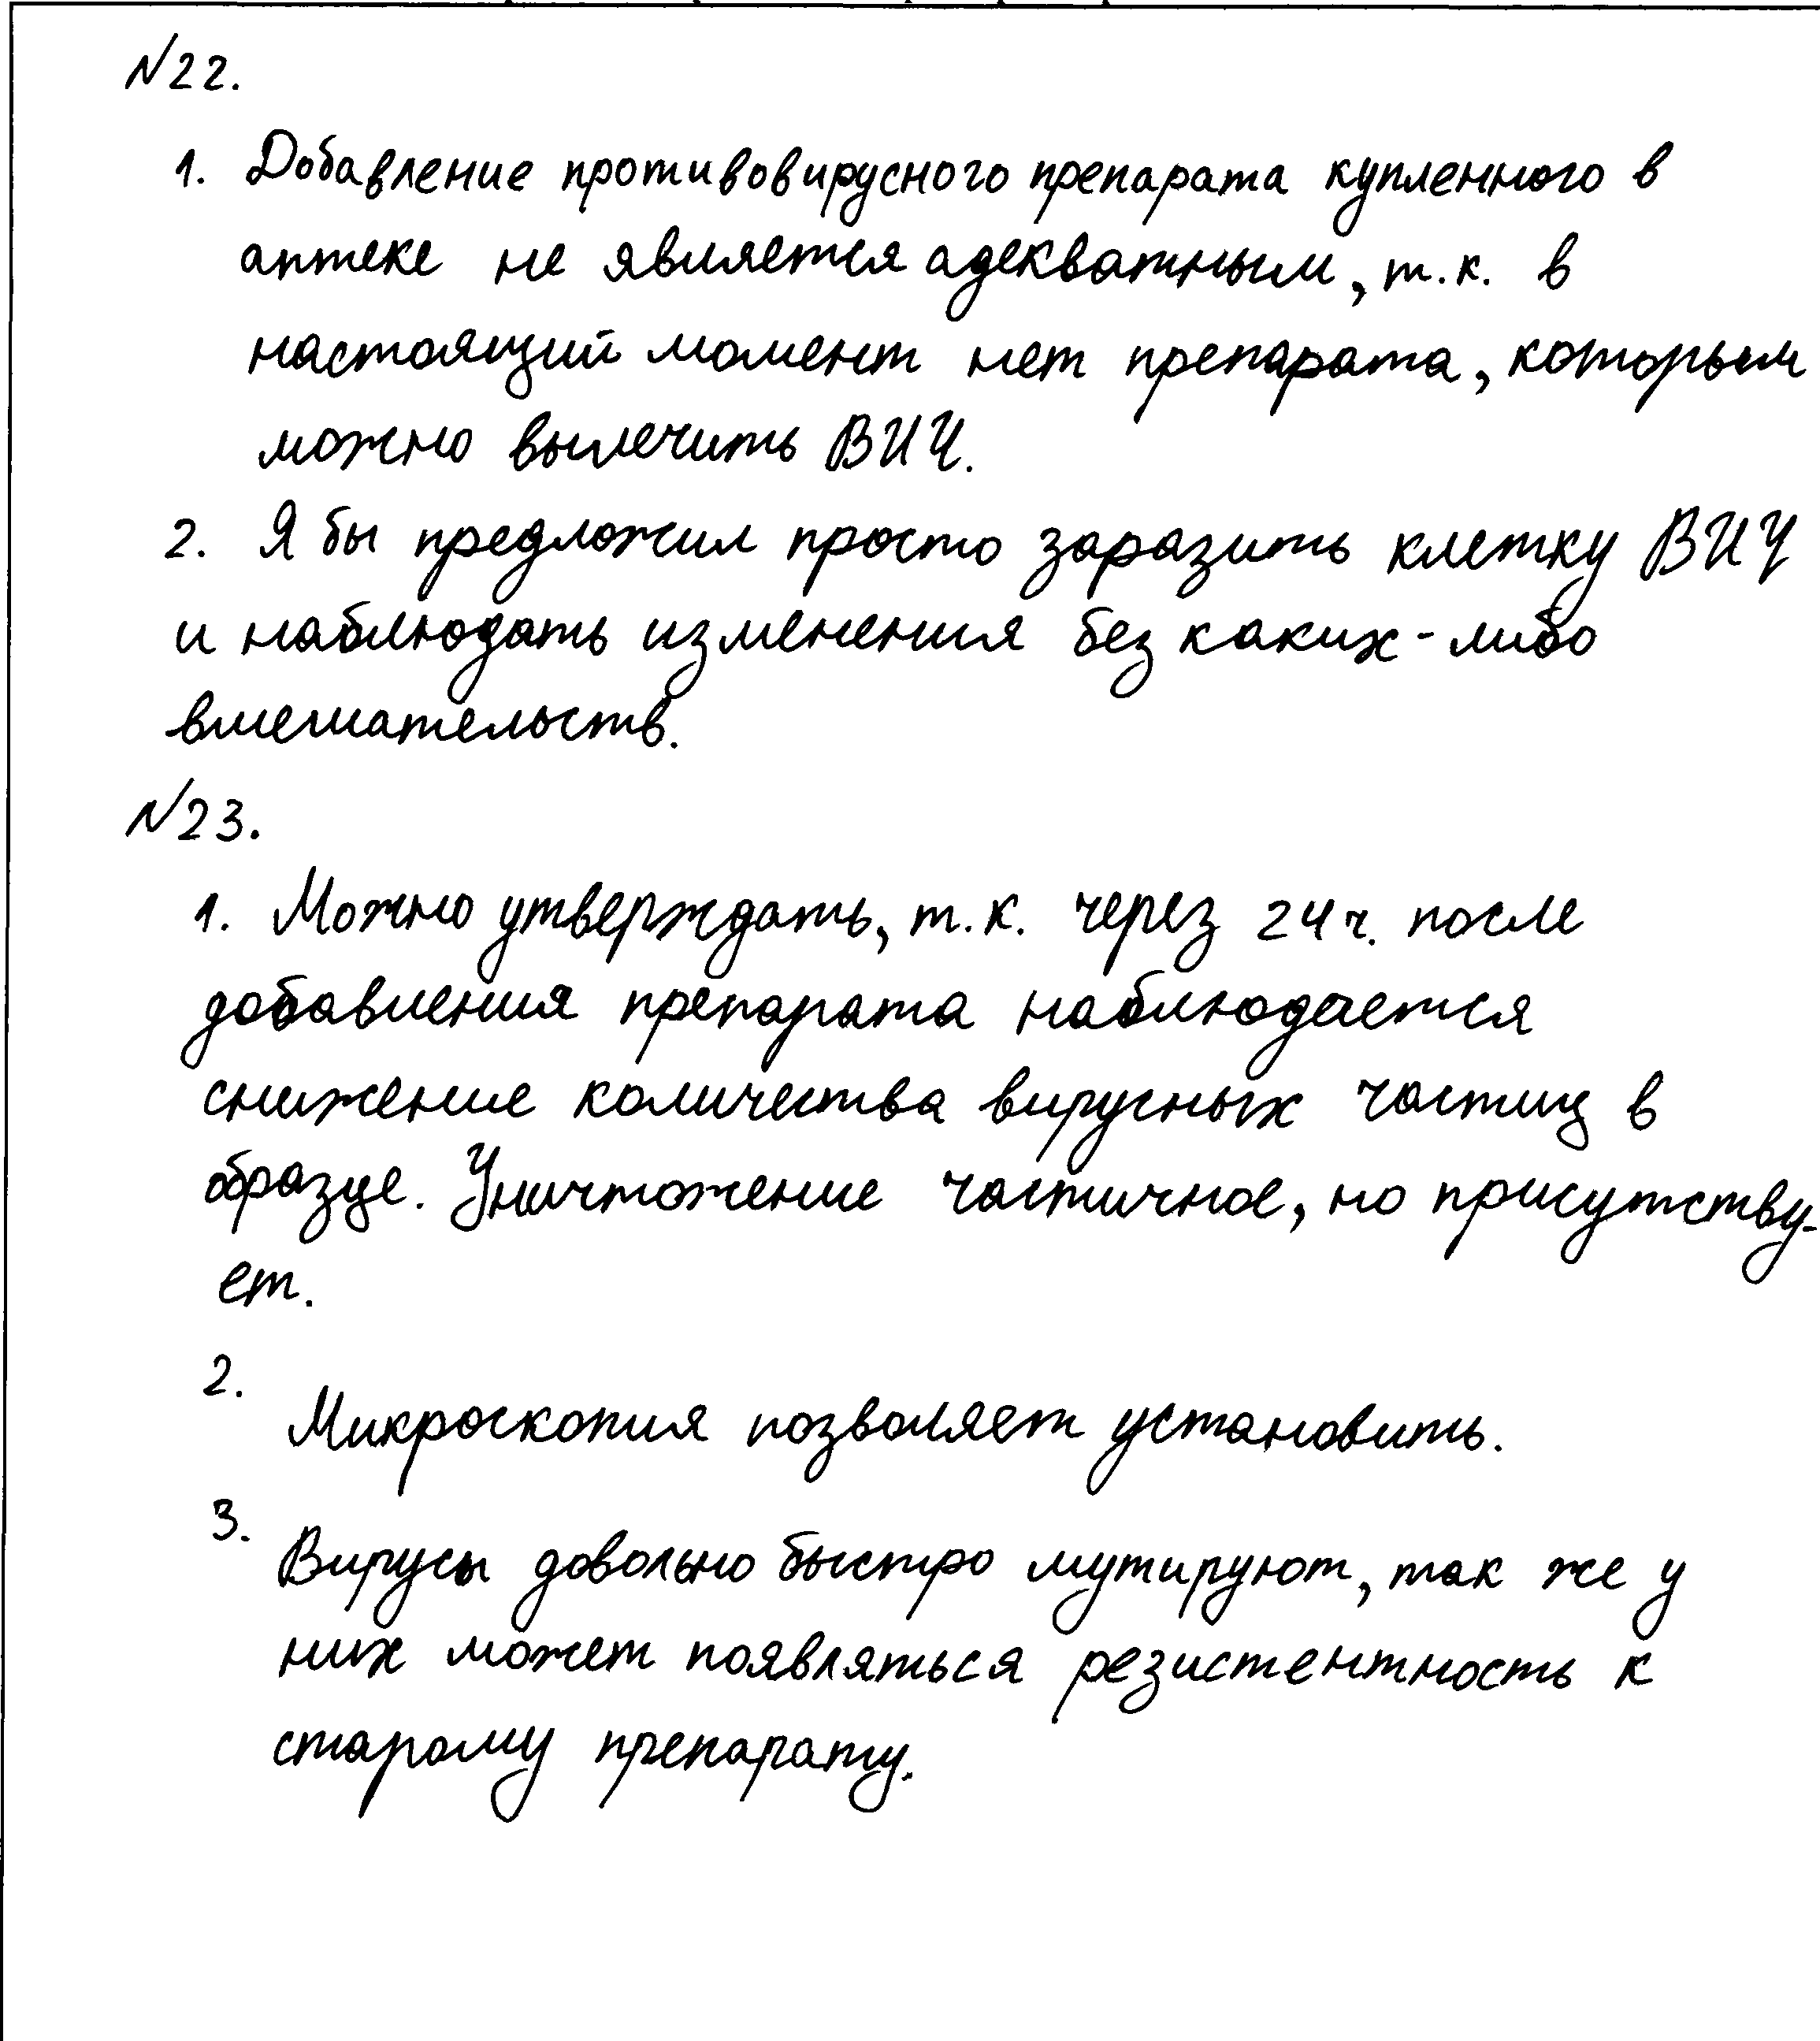 №22.
1. Добавление противовирусного препарата купленного в
аптеке не является адекватным, т.к. в
настоящий момент нет препарата, которым
можно вылечить ВИЧ.
2. Я бы предложил просто заразить клетку ВИЧ
и наблюдать изменения без каких-либо
вмешательств.
№23.
1. Можно утверждать, т.к. через 24 ч. после
добавления препарата наблюдается
снижение количества вирусных частиц в
образце. Уничтожение частичное, но присутству-
ет.
2. Микроскопия позволяет установить.
3. Вирусы довольно быстро мутируют, так же у
них может появляться резистентность к
старому препарату.